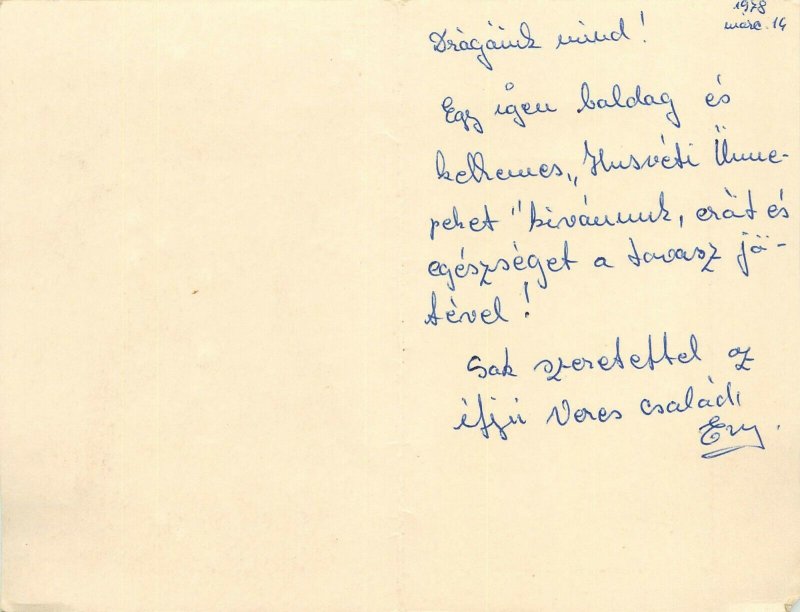 1978
márc. 14
Drágáink mind!
Egy igen boldog és
kellemes „Husvéti Ünne-
peket" kivánunk, erőt és
egészséget a tavasz jö-
tével!
Sok szeretettel az
ifjú Veres család: